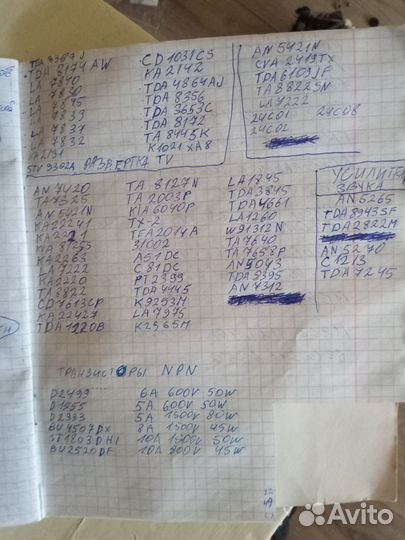 TDA 8174 AW
LA 7840
LA 7830
LA 7845
LA 7833
LA 7837
LA 7832
STV 9302A РАЗВЕРТКА TV
CD 1031 CS
KA 2142
TDA 4864AJ
TDA 8356
TDA 3653C
TDA 8172
TA 8445K
K1021 XA8
AN 5421N
CVA 2419TX
TDA 6109JF
TA 8822SN
LA 7222
24C01 24C08
24C02
AN 7420
TA 7325
AN 5421N
KA 22241
KA 2263
LA 7222
KA 2220
TA 8822
CD 1613CP
KA 22427
TDA 1220B
TA 8127N
TA 2003P
KIA 6040P
TX-2
TEA 2014A
31002
A51DC
C81DC
PT 2399
TDA 4445
K9253M
LA 7975
K2965M
LA 1845
TDA 3845
TDA 4661
LA 1260
W91312N
TA 7640
TA 7658P
AN 5043
TDA 5395
AN 7312
УСИЛИТЕЛ
ЗВУКА
AN 5265
TDA 8943SF
TDA 2822M
AN 5270
C1213
TDA 7245
ТРАНЗИСТОРЫ NPN
D2499 6A 600V 50W
D1555 5A 600V 50W
5A 1500V 80W
BU4507DX 8A 1500V 45W
ST1803DHI 10A 1500V 50W
BU2520DF 10A 800V 45W
Avito